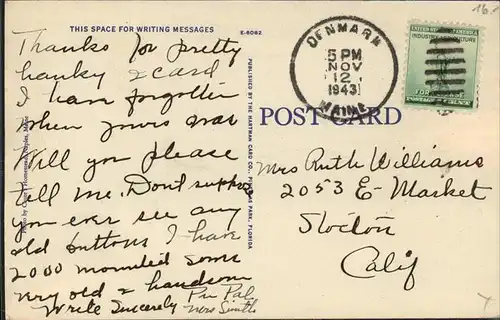 THIS SPACE FOR WRITING MESSAGES
E-6062
Thanks for pretty
hanky & card
I have forgotten
when yours was
Will you please
tell me. Don't suppose
you ever see any
old buttons I have
2000 mounted some
very old & handsome
Write Sincerely Pen Pal
Mrs Smith
PUBLISHED BY THE HARTMAN CARD CO., PARK, FLORIDA
DENMARK
5 PM
NOV
12
1943
MAINE
UNITED STATES
INDUSTRY AGRICULTURE
POST CARD
Mrs Ruth Williams
2053 E- Market
Stockton
Calif